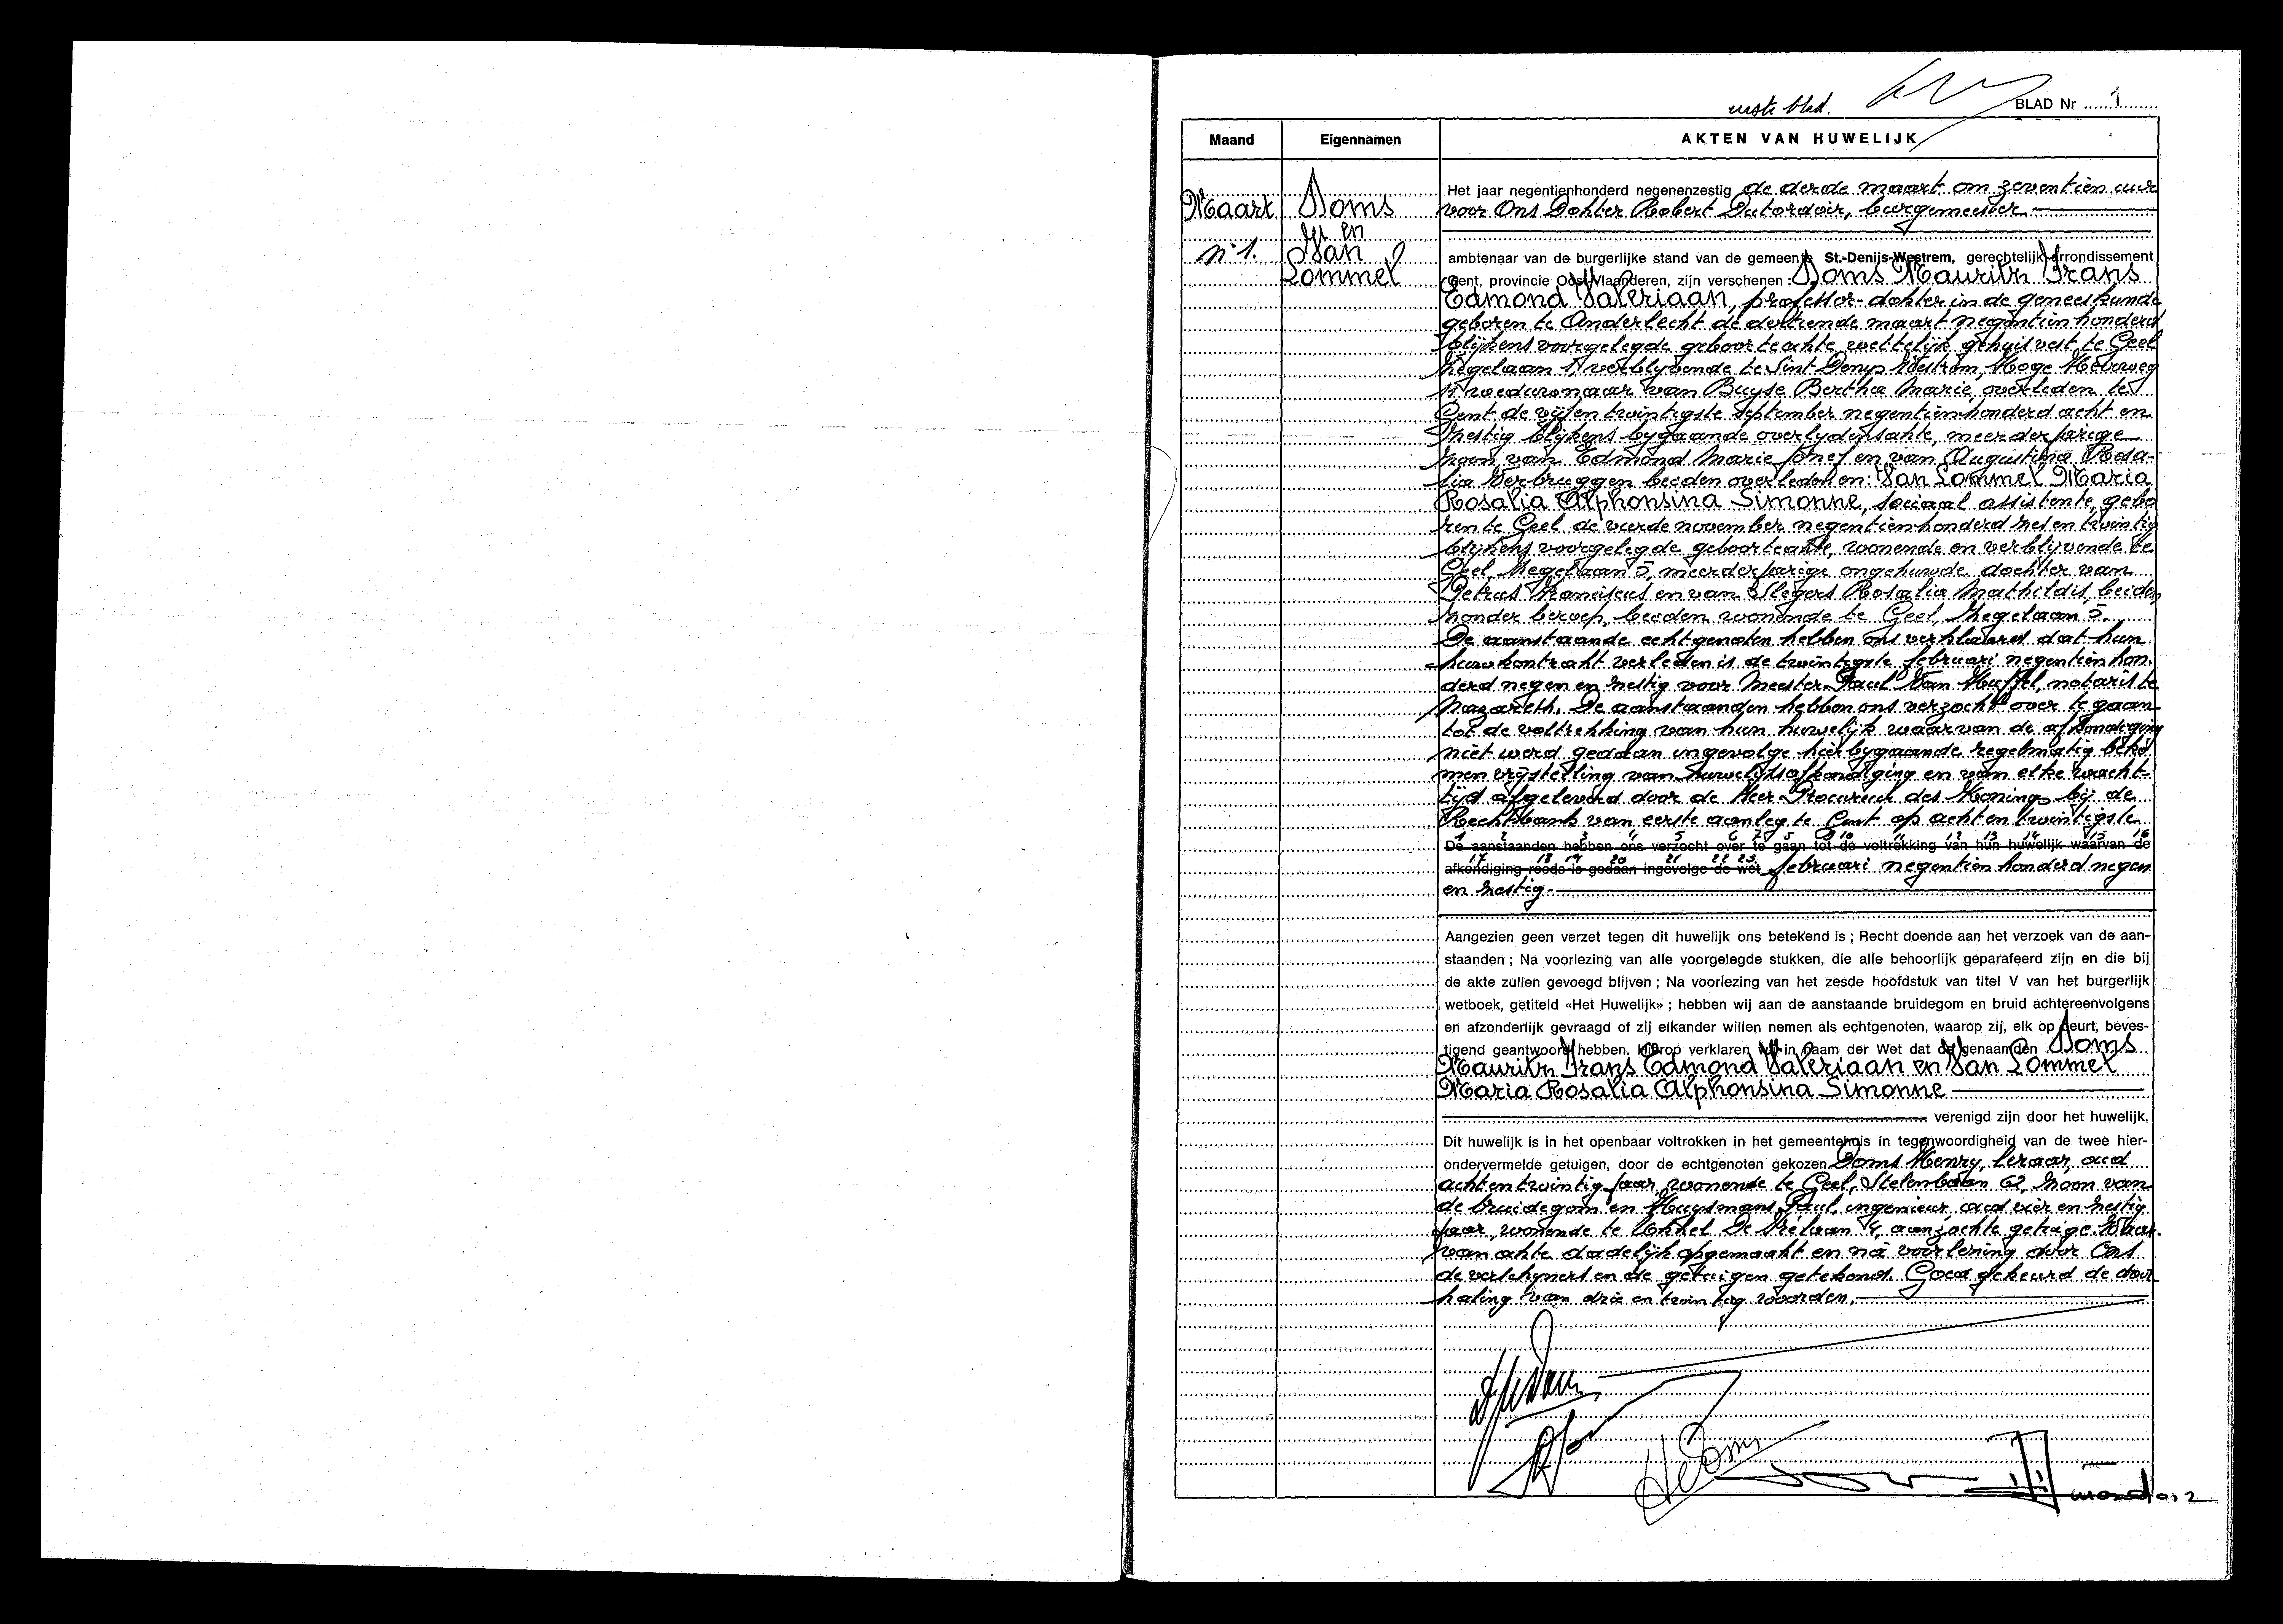 eerste blad.
BLAD Nr 1
Maand
Eigennamen
AKTEN VAN HUWELIJK
Maart
n° 1.
Doms
en
Van
Lommel
Het jaar negentienhonderd negenenzestig de derde maart om zeventien uur
voor Ons Dokter Robert Dutordoir, burgemeester
ambtenaar van de burgerlijke stand van de gemeente St.-Denijs-Westrem, gerechtelijk arrondissement
Gent, provincie Oost-Vlaanderen, zijn verschenen : Doms Maurits Frans
Edmond Valeriaan, professor-dokter in de geneeskunde
geboren te Anderlecht de dertiende maart negentienhonderd
blijkens voorgelegde geboorteakte wettelijk gehuisvest te Geel
Zegelaan 5, verblijvende te Sint Denys Westrem, Hoge Heirweg
weduwnaar van Buyse Bertha Marie, overleden te
Gent de vijfentwintigste september negentienhonderd acht en
zestig blijkens bygaande overlydensakte, meerderjarige
zoon van Edmond Marie Jozef en van Augustina Rosa-
lia Verbruggen beiden overleden en: Van Lommel Maria
Rosalia Alphonsina Simonne, sociaal assistente, gebo
ren te Geel de vierde november negentienhonderd zes en twintig
blijkens voorgelegde geboorteakte, wonende en verblijvende te
Geel, Zegelaan 5, meerderjarige ongehuwde dochter van
Petrus Franciscus en van Slegers Rosalia Mathildis, beiden
zonder beroep, beiden wonende te Geel, Zegelaan 5.
De aanstaande echtgenoten hebben ons verklaard dat hun
huwkontrakt verleden is de twintigste februari negentienhon.
derd negen en zestig voor Meester Paul Van Huffel, notaris te
Nazareth. De aanstaanden hebben ons verzocht over te gaan
tot de voltrekking van hun huwelijk waarvan de afkondiging
niet werd gedaan ingevolge hier bygaande regelmatig beko
men vrijstelling van huwelijksafkondiging en van elke wacht-
tijd afgeleverd door de Heer Procureur des Konings bij de
Rechtbank van eerste aanleg te Gent op acht en twintigste
1 2 3 4 5 6 7 8 9 10 11 12 13 14 15 16
De aanstaanden hebben ons verzocht over te gaan tot de voltrekking van hun huwelijk waarvan de
17 18 19 20 21 22 23
afkondiging reeds is gedaan ingevolge de wet februari negentienhonderd negen
en zestig.
Aangezien geen verzet tegen dit huwelijk ons betekend is ; Recht doende aan het verzoek van de aan-
staanden ; Na voorlezing van alle voorgelegde stukken, die alle behoorlijk geparafeerd zijn en die bij
de akte zullen gevoegd blijven ; Na voorlezing van het zesde hoofdstuk van titel V van het burgerlijk
wetboek, getiteld «Het Huwelijk» ; hebben wij aan de aanstaande bruidegom en bruid achtereenvolgens
en afzonderlijk gevraagd of zij elkander willen nemen als echtgenoten, waarop zij, elk op beurt, beves-
tigend geantwoord hebben. Hierop verklaren wij in naam der Wet dat de genaamden Doms
Maurits Frans Edmond Valeriaan en Van Lommel
Maria Rosalia Alphonsina Simonne
verenigd zijn door het huwelijk.
Dit huwelijk is in het openbaar voltrokken in het gemeentehuis in tegenwoordigheid van de twee hier-
ondervermelde getuigen, door de echtgenoten gekozen Doms Henry, leraar, oud
achtentwintig jaar, wonende te Geel, Stelenbaan 62, zoon van
de bruidegom en Huysmans Paul, ingenieur oud vier en zestig
jaar, wonende te Ukkel De Frélaan 4, aanzochte getuige. Waar-
van akte dadelijk opgemaakt en na voorlezing door Ons
de verschijners en de getuigen getekend. Goed gekeurd de door-
haling van drie en twintig woorden.
HDoms